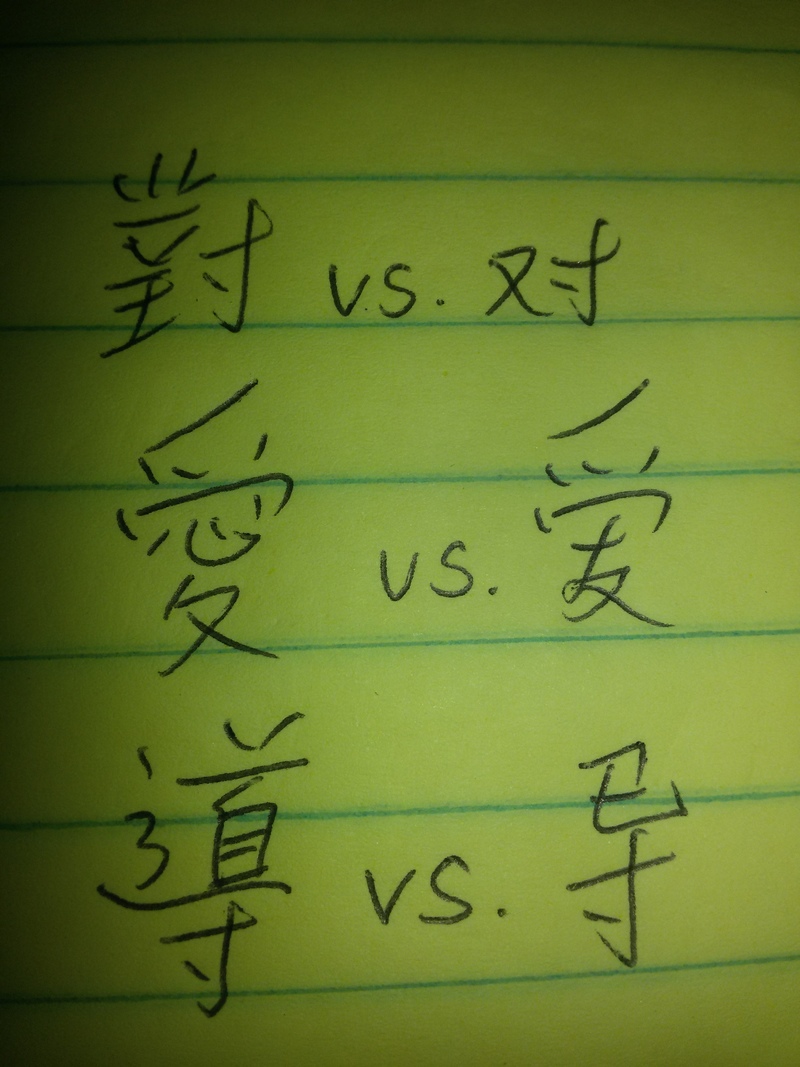 對 vs. 对
愛 vs. 爱
導 vs. 导